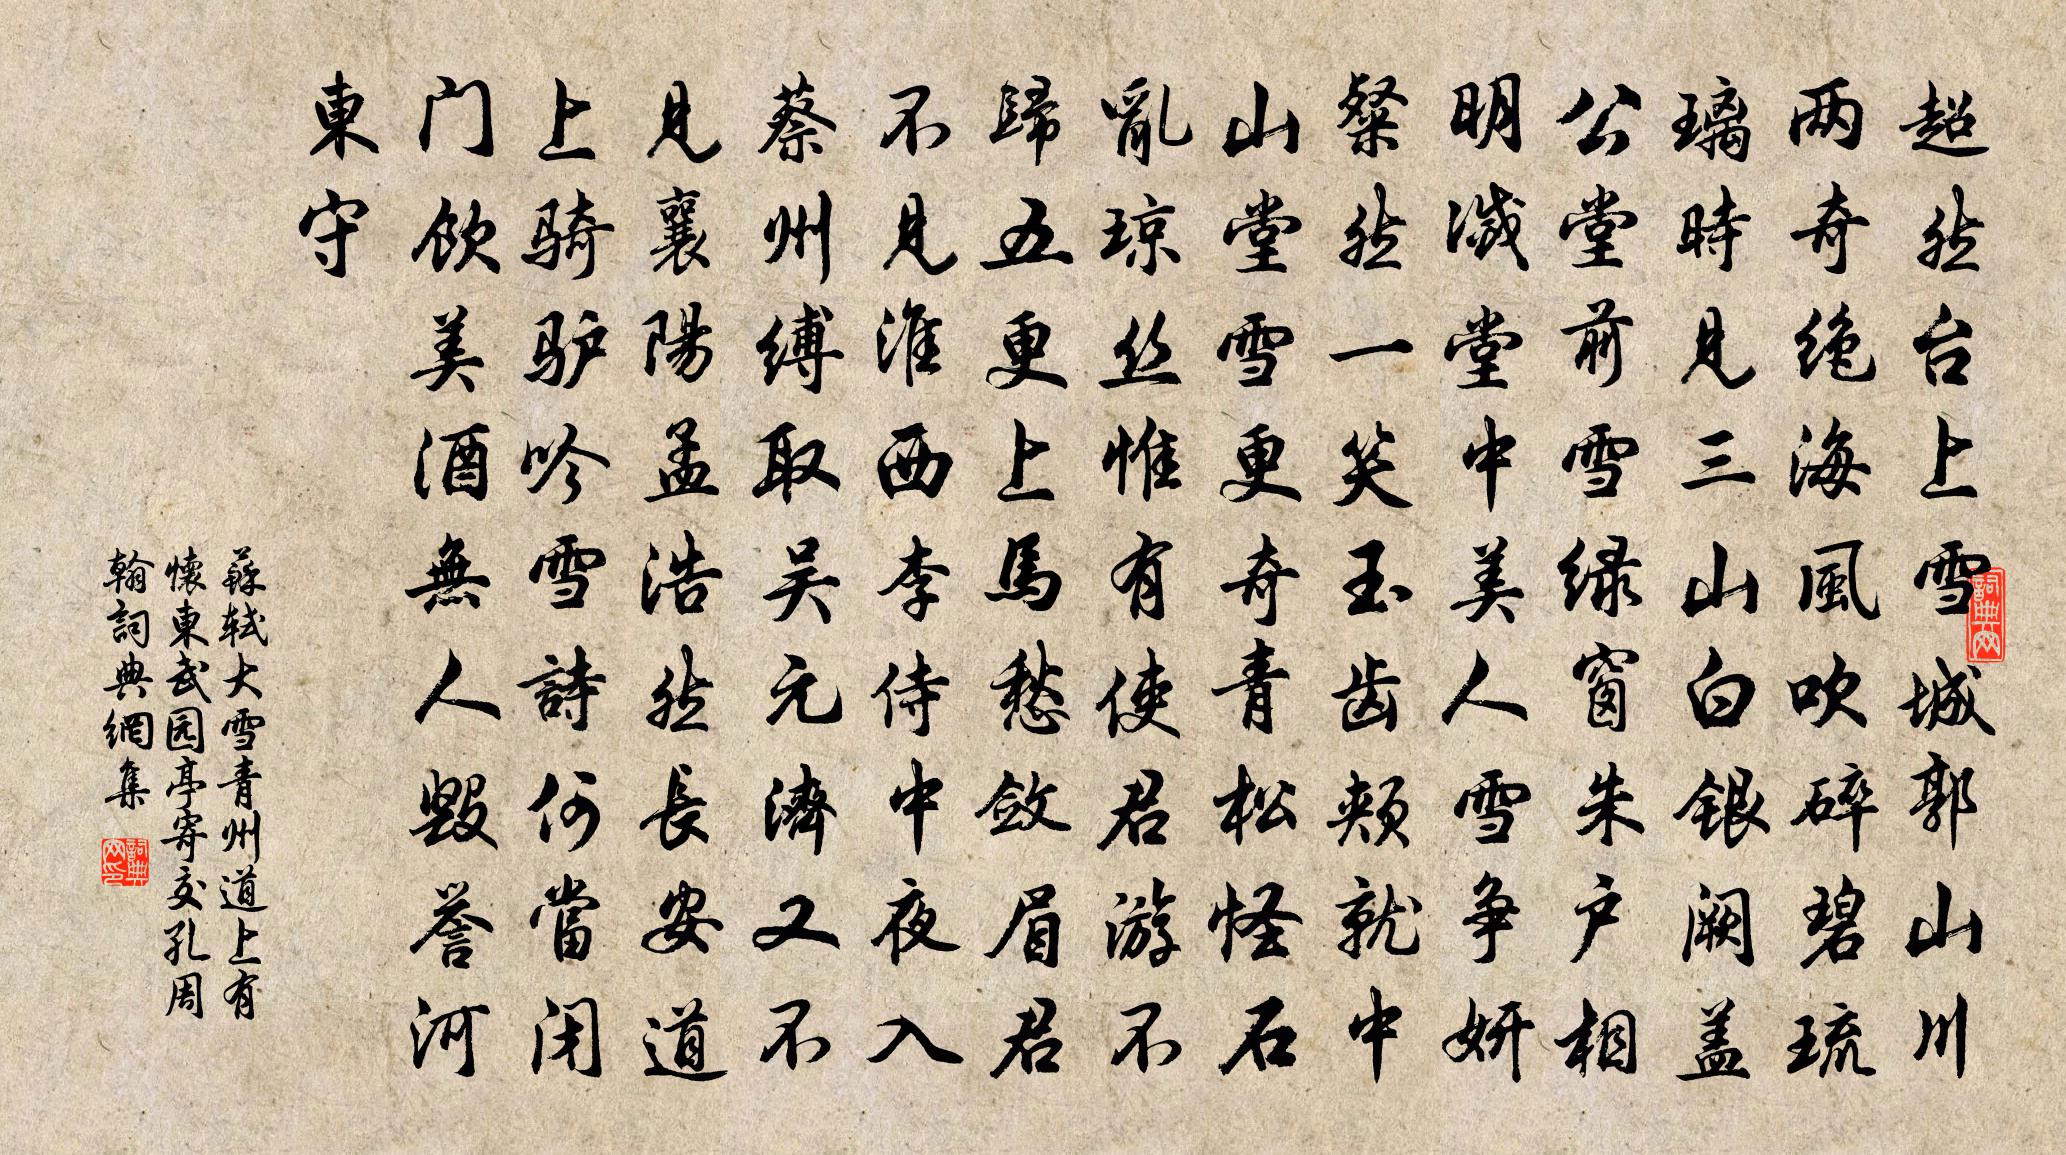 超然台上雪城郭山川
两奇绝海風吹碎碧琉
璃時見三山白銀阙盖
公堂前雪绿窗朱户相
明滅堂中美人雪争妍
粲然一笑玉齿颊就中
山堂雪更奇青松怪石
亂琼丝惟有使君游不
歸五更上馬愁敛眉君
不見淮西李侍中夜入
蔡州缚取吴元濟又不
見襄陽孟浩然長安道
上骑驴吟雪詩何當闭
门飲美酒無人毁誉河
東守
蘇轼大雪青州道上有
懷東武园亭寄交孔周
翰詞典網集
詞典网
詞典网印